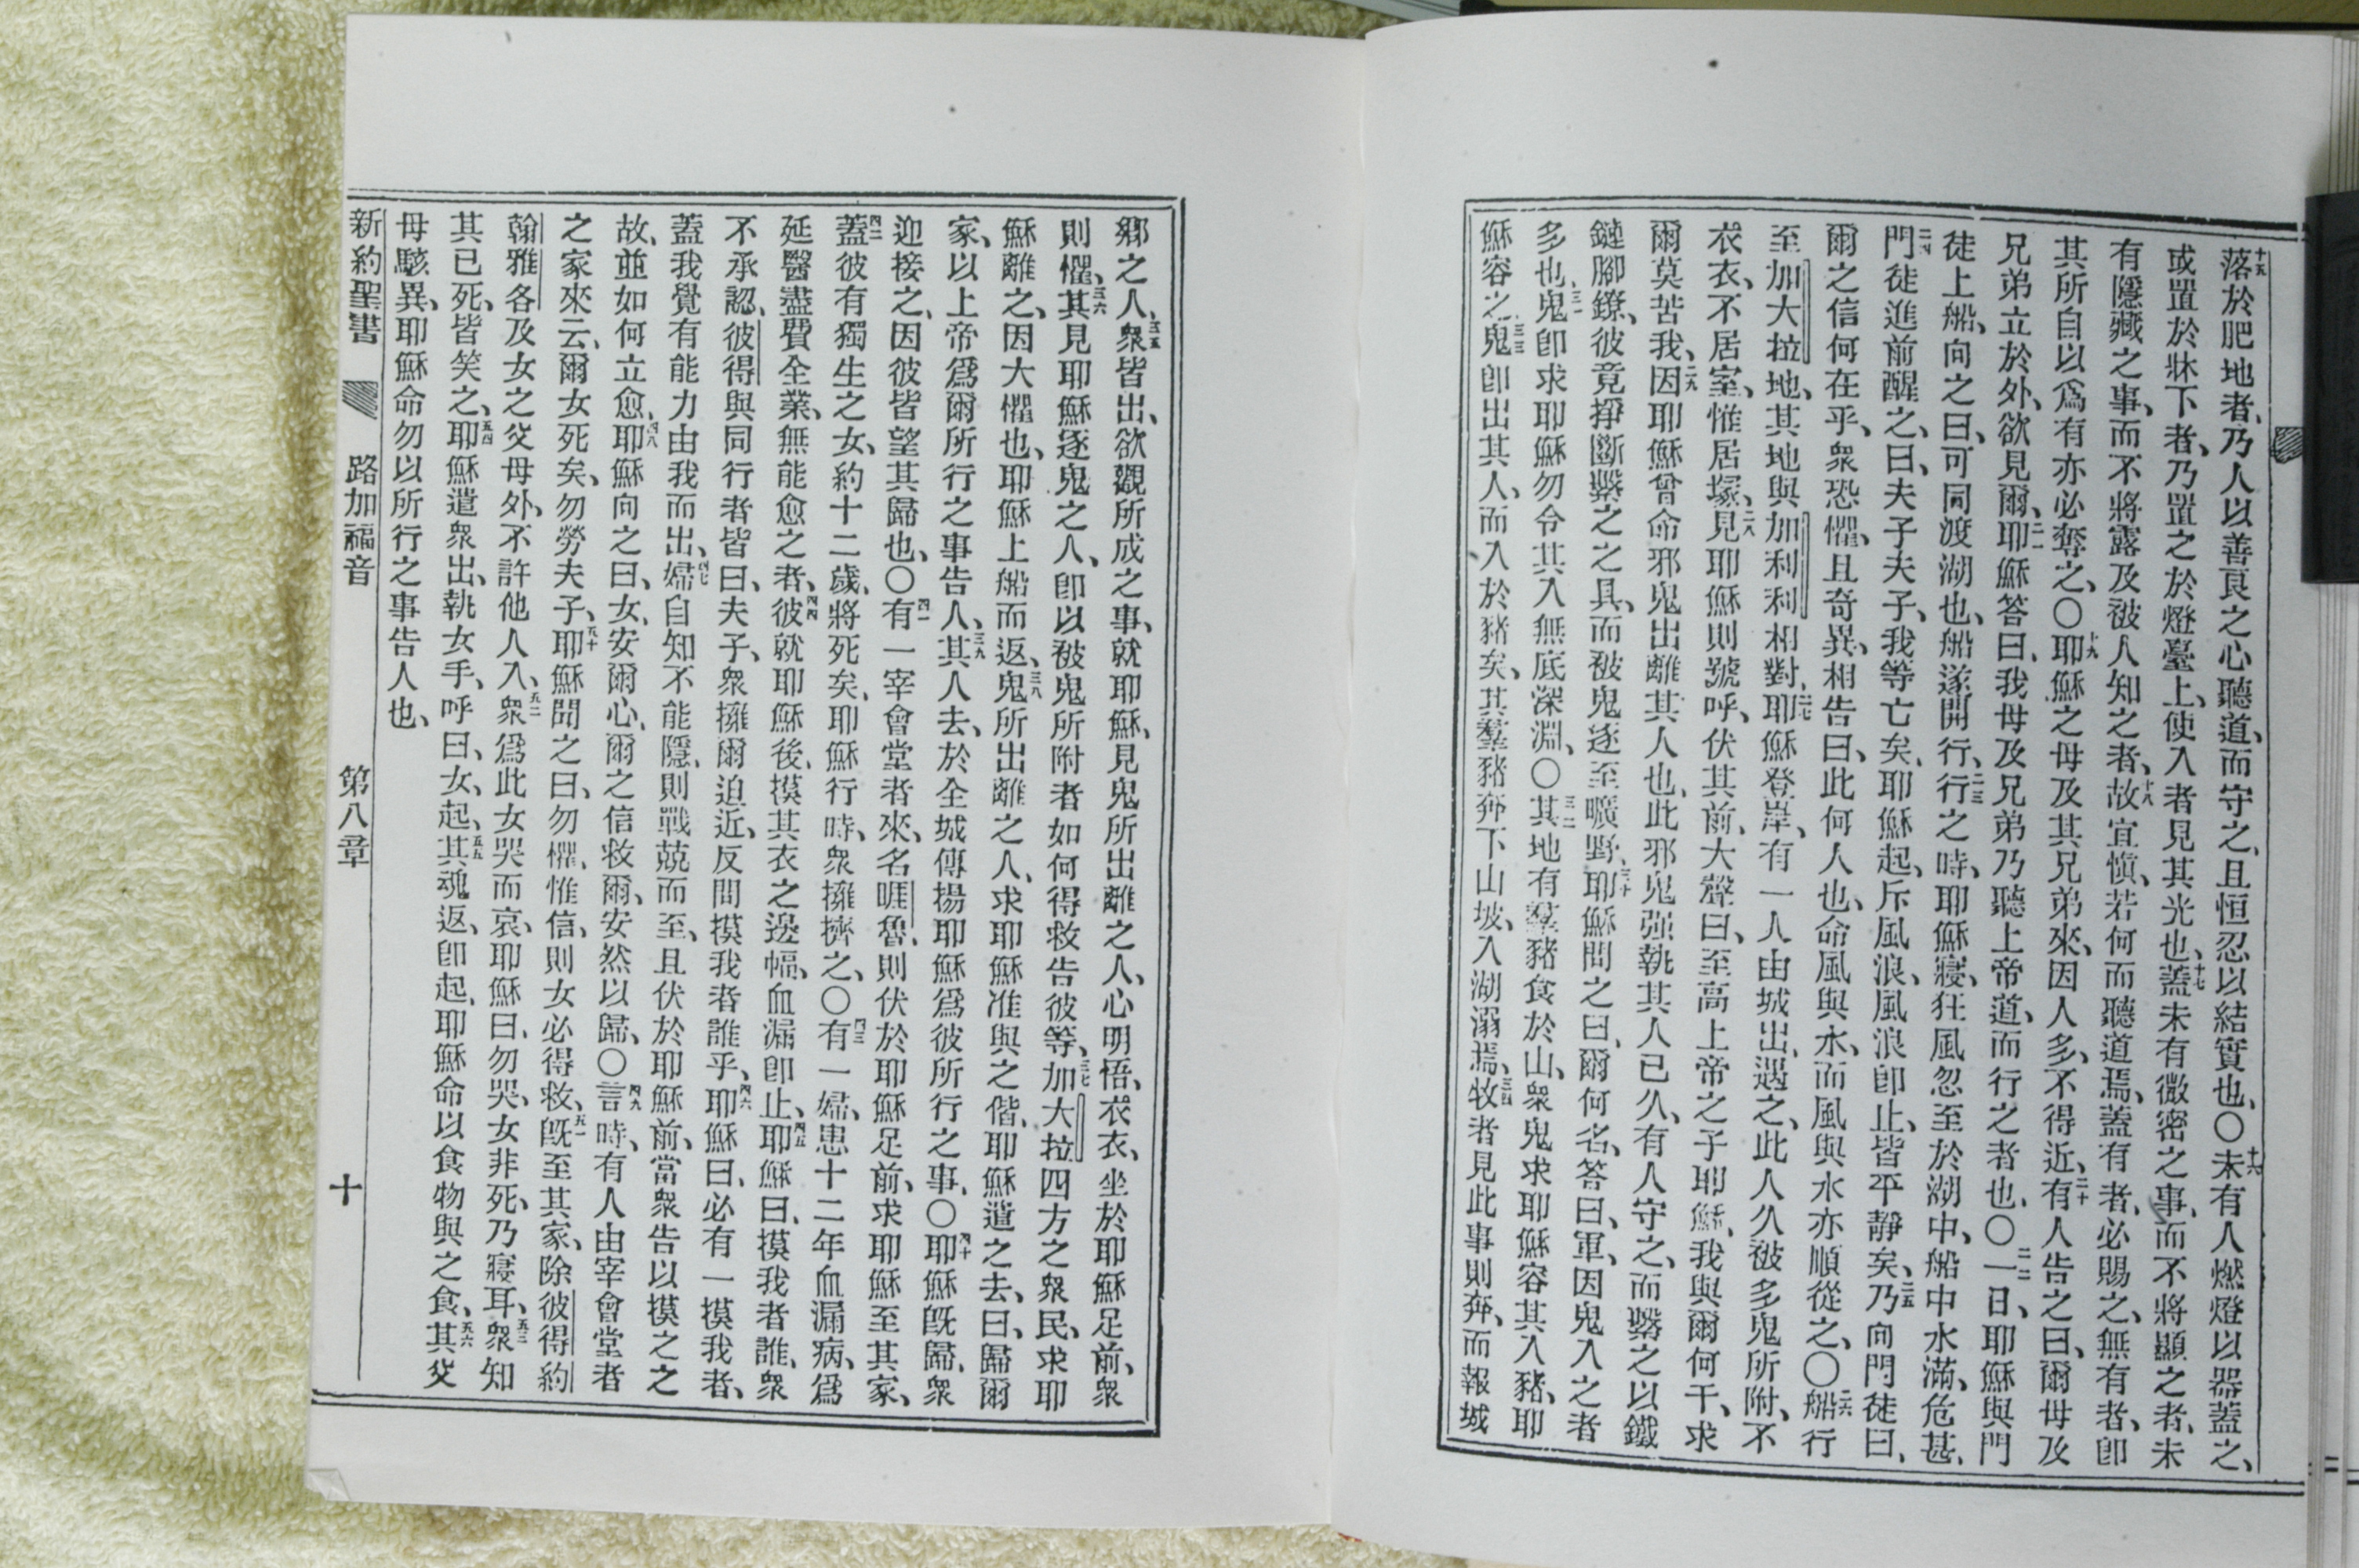 十五落於肥地者、乃人以善良之心聽道、而守之、且恒忍以結實也、〇十六未有人燃燈以器蓋之、
或置於牀下者、乃置之於燈臺上、使入者見其光也、十七蓋未有微密之事、而不將顯之者、未
有隱藏之事、而不將露及被人知之者、十八故宜愼、若何而聽道焉、蓋有者、必賜之、無有者、卽
其所自以爲有亦必奪之、〇十九耶穌之母及其兄弟來、因人多、不得近、二十有人告之曰、爾母及
兄弟立於外、欲見爾、二一耶穌答曰、我母及兄弟乃聽上帝道、而行之者也、〇二二一日、耶穌與門
徒上船、向之曰、可同渡湖也、船遂開行、二三行之時、耶穌寢、狂風忽至於湖中、船中水滿、危甚、
二四門徒進前醒之、曰、夫子夫子、我等亡矣、耶穌起、斥風浪、風浪卽止、皆平靜矣、二五乃向門徒曰、
爾之信何在乎、衆恐懼、且奇異、相告曰、此何人也、命風與水、而風與水亦順從之、〇二六船行
至加大拉地、其地與加利利相對、二七耶穌登岸、有一人由城出、遇之、此人久被多鬼所附、不
衣衣、不居室、惟居塚、二八見耶穌則號呼、伏其前、大聲曰、至高上帝之子耶穌、我與爾何干、求
爾莫苦我、二九因耶穌曾命邪鬼出離其人也、此邪鬼强執其人已久、有人守之、而繫之以鐵
鏈腳鐐、彼竟掙斷繫之之具、而被鬼逐至曠野、三十耶穌問之曰、爾何名、答曰、軍、因鬼入之者
多也、三一鬼卽求耶穌勿令其入無底深淵、〇三二其地有羣豬食於山、衆鬼求耶穌容其入豬、耶
穌容之、三三鬼卽出其人、而入於豬矣、其羣豬奔下山坡、入湖溺焉、三四牧者見此事則奔、而報城
鄉之人、三五衆皆出、欲觀所成之事、就耶穌、見鬼所出離之人、心明悟、衣衣、坐於耶穌足前、衆
則懼、三六其見耶穌逐鬼之人、卽以被鬼所附者如何得救告彼等、三七加大拉四方之衆民、求耶
穌離之、因大懼也、耶穌上船而返、三八鬼所出離之人、求耶穌准與之偕、耶穌遣之去、曰、歸爾
家、以上帝爲爾所行之事告人、三九其人去、於全城傳揚耶穌爲彼所行之事、〇四十耶穌旣歸、衆
迎接之、因彼皆望其歸也、〇四一有一宰會堂者來、名睚魯、則伏於耶穌足前、求耶穌至其家、
四二蓋彼有獨生之女、約十二歲、將死矣、耶穌行時、衆擁擠之、〇四三有一婦、患十二年血漏病、爲
延醫盡費全業、無能愈之者、四四彼就耶穌後、摸其衣之邊幅、血漏卽止、四五耶穌曰、摸我者誰、衆
不承認、彼得與同行者皆曰、夫子、衆擁爾迫近、反問摸我者誰乎、四六耶穌曰、必有一摸我者、
蓋我覺有能力由我而出、四七婦自知不能隱、則戰兢而至、且伏於耶穌前、當衆告以摸之之
故、並如何立愈、四八耶穌向之曰、女、安爾心、爾之信救爾、安然以歸、〇四九言時、有人由宰會堂者
之家來云、爾女死矣、勿勞夫子、五十耶穌聞之曰、勿懼、惟信、則女必得救、五一旣至其家、除彼得約
翰雅各及女之父母外、不許他人入、五二衆爲此女哭而哀、耶穌曰、勿哭、女非死、乃寢耳、五三衆知
其已死、皆笑之、五四耶穌遣衆出、執女手、呼曰、女、起、五五其魂返、卽起、耶穌命以食物與之食、五六其父
母駭異、耶穌命勿以所行之事告人也、
新約聖書 路加福音 第八章 十